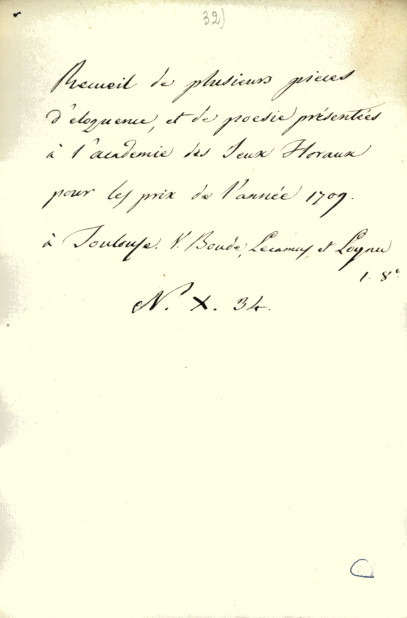 32)
Recueil de plusieurs pieces
d'eloquence, et de poesie présentées
à l'academie des Jeux Floraux
pour les prix de l'année 1709.
à Toulouse. V. Boude, Lecamus, et Loyau
1. 8°
N. X. 34.